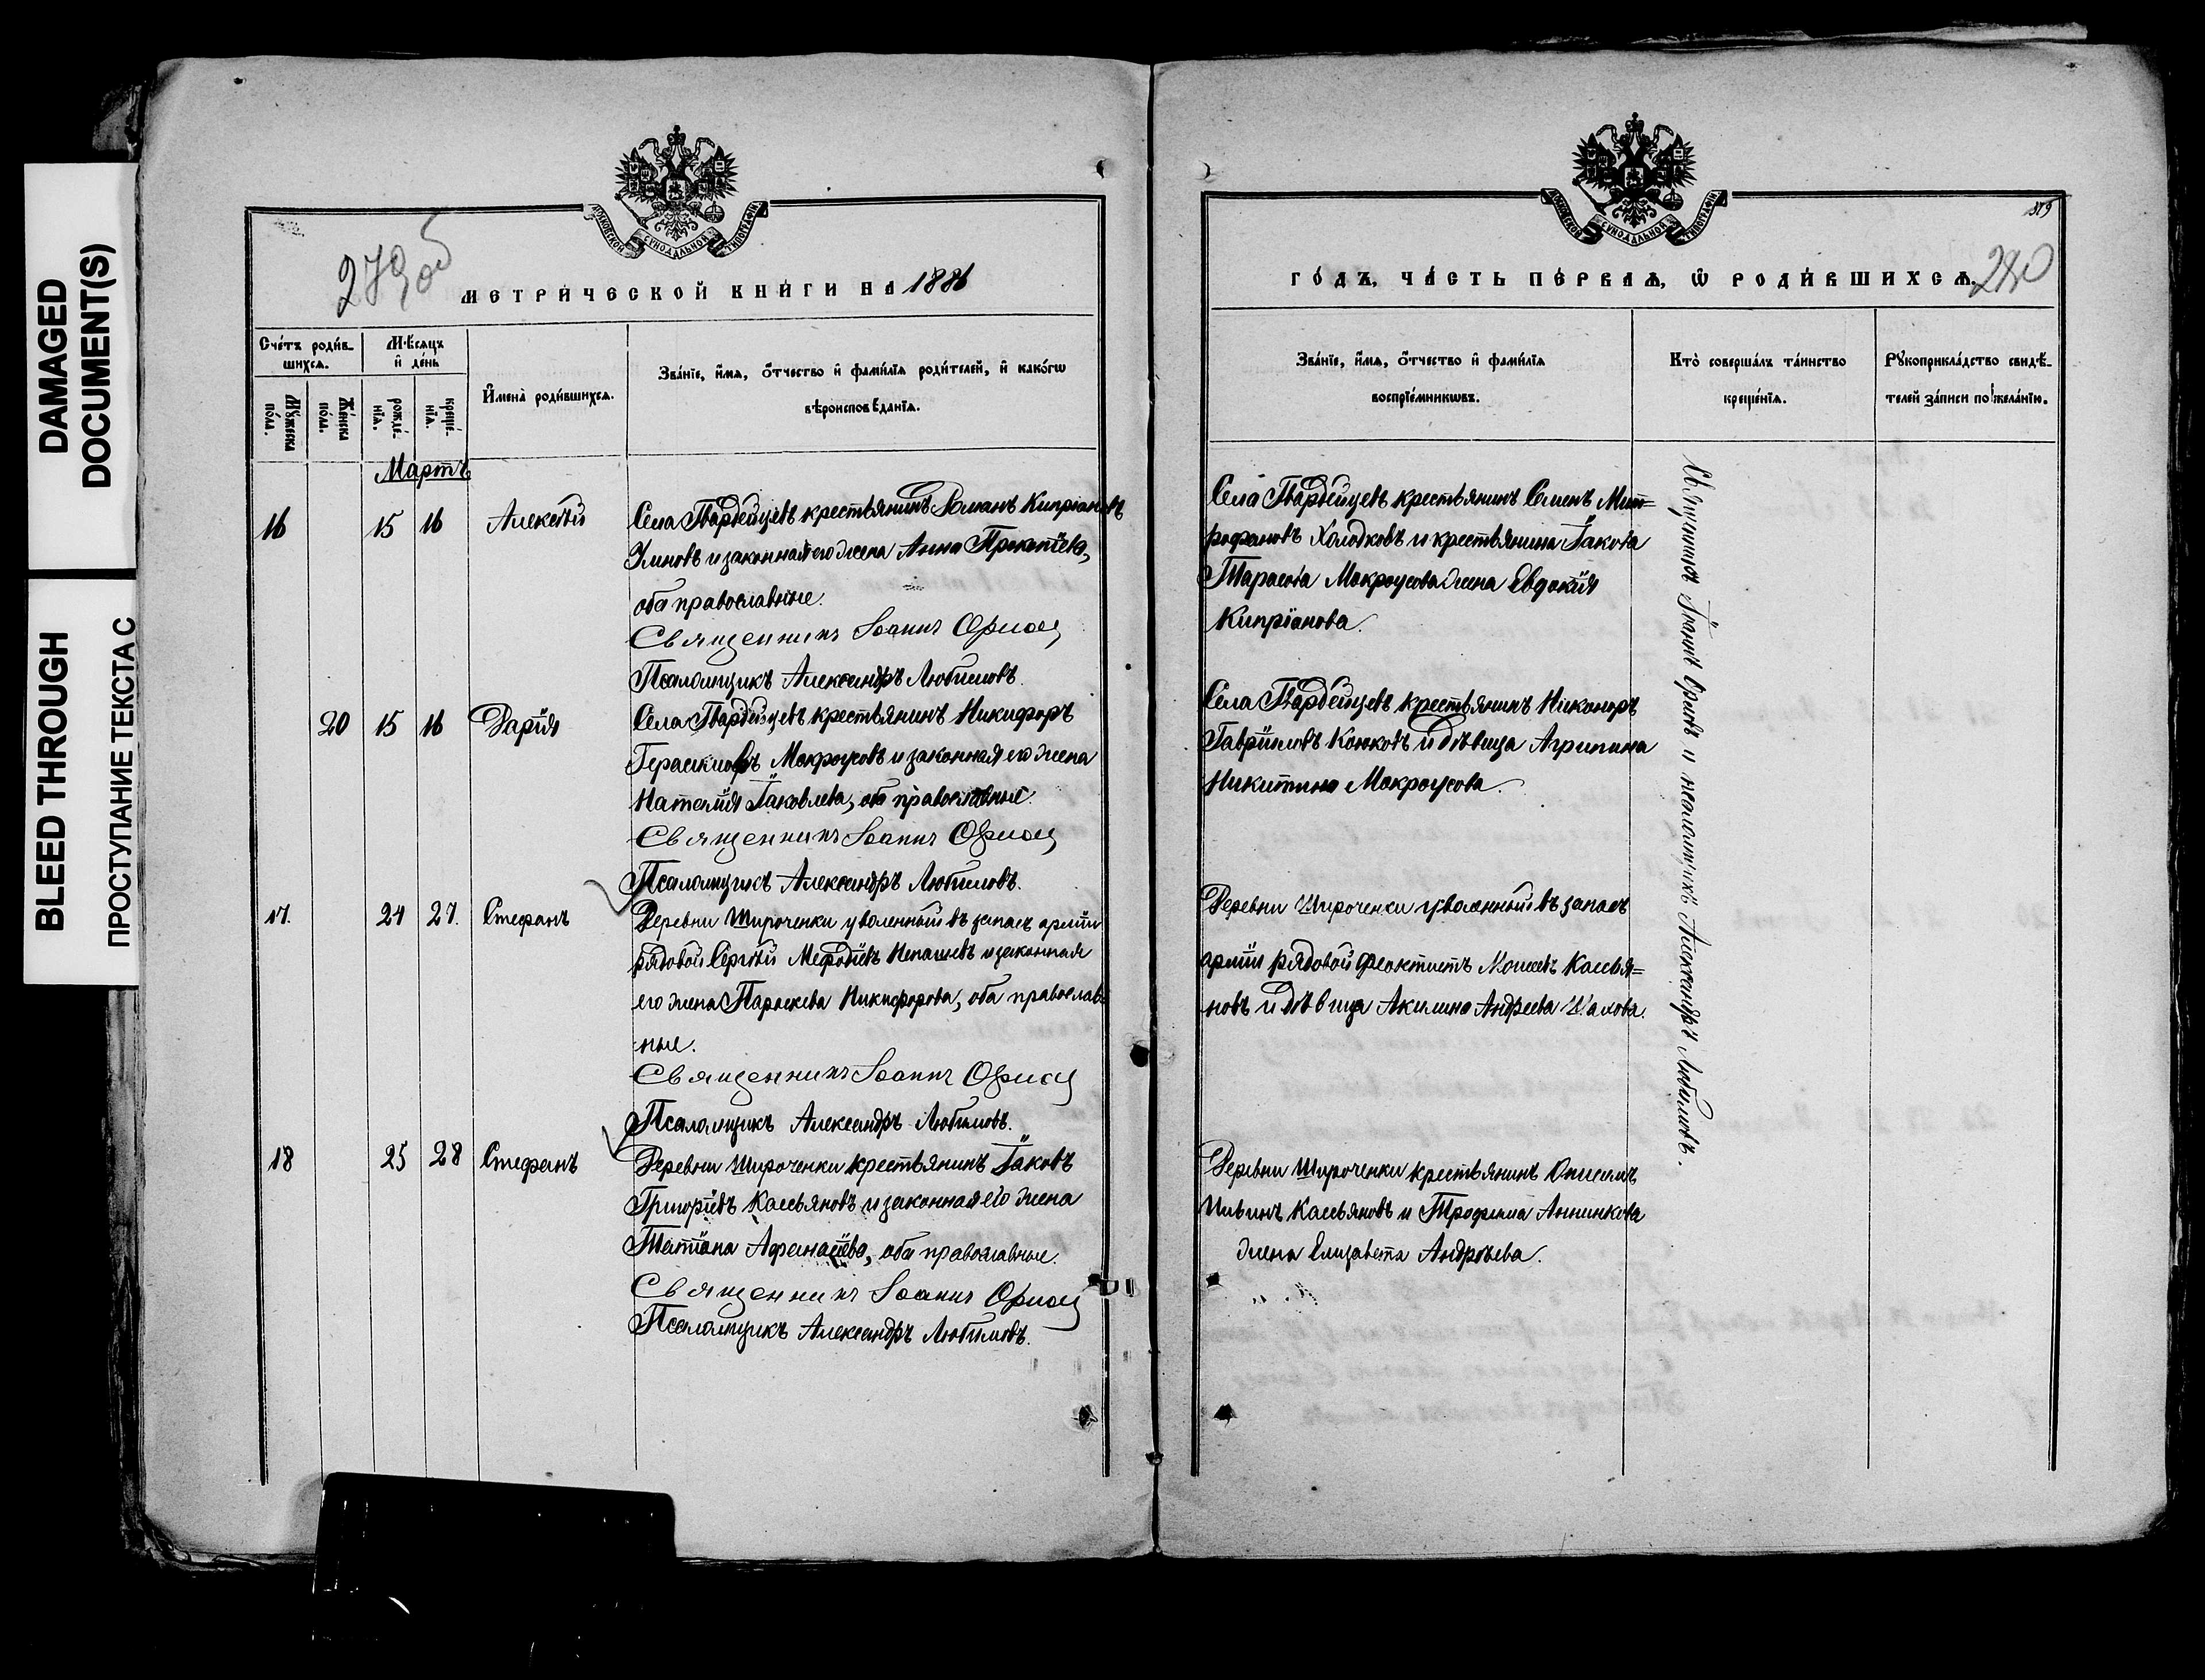 DAMAGED
DOCUMENT(S)
BLEED THROUGH
ПРОСТУПАНИЕ ТЕКСТА С
МОСКОВСКОЙ СѴНОДАЛЬНОЙ ТИПОГРАФІИ
279об
МЕТРИЧЕСКОЙ КНИГИ НА 1886
Счетъ родив-
шихся.
Мѣсяцъ
и день
Имена родившихся.
Званіе, имя, отчество и фамилія родителей, и какогω
вѣроисповѣданія.
Мужеска
пола.
Женска
пола.
рожде-
нія.
креще-
нія.
Мартъ
16 15 16 Алексѣй
Села Гвардейцевъ крестьянинъ Романъ Кипріановъ
Умновъ и законная его жена Анна Прокопіева,
оба православные.
Священникъ Іоаннъ
Псаломщикъ Александръ Любимовъ.
20 15 16 Дарія
Села Гвардейцевъ крестьянинъ Никифоръ
Герасимовъ Мокроусовъ и законная его жена
Наталія Іаковлева, оба православные.
Священникъ Іоаннъ
Псаломщикъ Александръ Любимовъ.
17. 24 27. Стефанъ
Деревни Широченки уволенный въ запасъ арміи
рядовой Сергѣй Меѳодіевъ Ненашевъ и законная
его жена Параскева Никифорова, оба православ-
ные.
Священникъ Іоаннъ
Псаломщикъ Александръ Любимовъ.
18 25 28 Стефанъ
Деревни Широченки крестьянинъ Іаковъ
Григоріевъ Касьяновъ и законная его жена
Татіана Афанасіева, оба православные.
Священникъ Іоаннъ
Псаломщикъ Александръ Любимовъ.
МОСКОВСКОЙ СѴНОДАЛЬНОЙ ТИПОГРАФІИ
280
ГОДЪ, ЧАСТЬ ПЕРВАЯ, Ѡ РОДИВШИХСЯ.
Званіе, имя, отчество и фамилія
воспріемникωвъ.
Кто совершалъ таинство
крещенія.
Рукоприкладство свидѣ-
телей записи по желанію.
Села Гвардейцевъ крестьянинъ Семенъ Мит=
рофановъ Холодковъ и крестьянина Іакова
Тарасова Мокроусова жена Евдокія
Кипріанова.
Села Гвардейцевъ крестьянинъ Никоноръ
Гавріиловъ Конковъ и дѣвица Агрипина
Никитина Мокроусова.
Деревни Широченки уволенный въ запасъ
арміи рядовой Феоктистъ Моисеевъ Касья=
новъ и дѣвица Акилина Андреева
Деревни Широченки крестьянинъ
Касьяновъ и Трофима Аннинкова
жена Елизавета Андрѣева.
Іоаннъ и псаломщикъ Александръ Любимовъ.